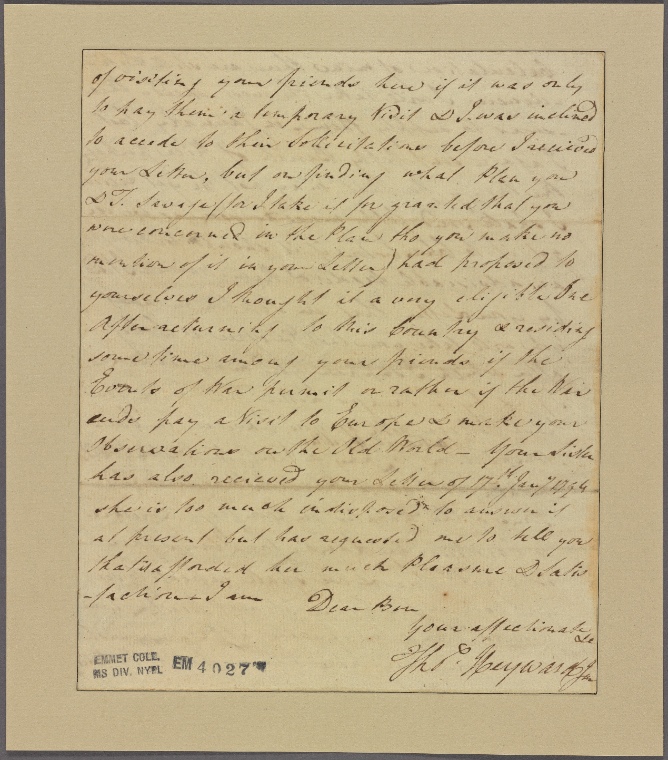 of visiting your friends here if it was only
to pay them a temporary Visit & I was inclined
to accede to their Sollicitations before I recieved
your Letter, but on finding what Plan you
& T. Savage (for I take it for granted that you
were concerned in the Plan tho you make no
mention of it in your Letter) had proposed to
yourselves I thought it a very eligible One
After returning to this Country & residing
some time among your friends if the
Events of War permit or rather if the War
ends pay a Visit to Europe & make your
Observations on the Old World – Your Sister
has also recieved your Letter of 17th Jany
she is too much indisposed to answer it
at present but has requested me to tell you
that it afforded her much Pleasure & Satis
-faction – I am
Dear
Your affectionate
Thos. Heyward Jun
EMMET COLL.
MS DIV. NYPL
EM 4027